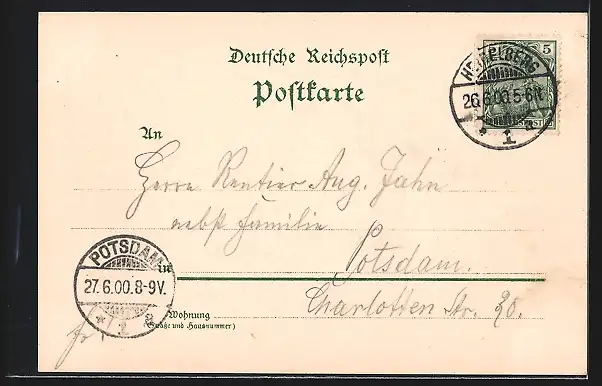 Deutsche Reichspost
Postkarte
5
HEIDELBERG
26.6.00.5-6N.
* 1 a
An
Herrn Rentier Aug. Jahn
nebst Familie
Potsdam.
in
Charlotten Str. 20.
POTSDAM
27.6.00.8-9V.
* 1
Wohnung
(Straße und Hausnummer)
fr.